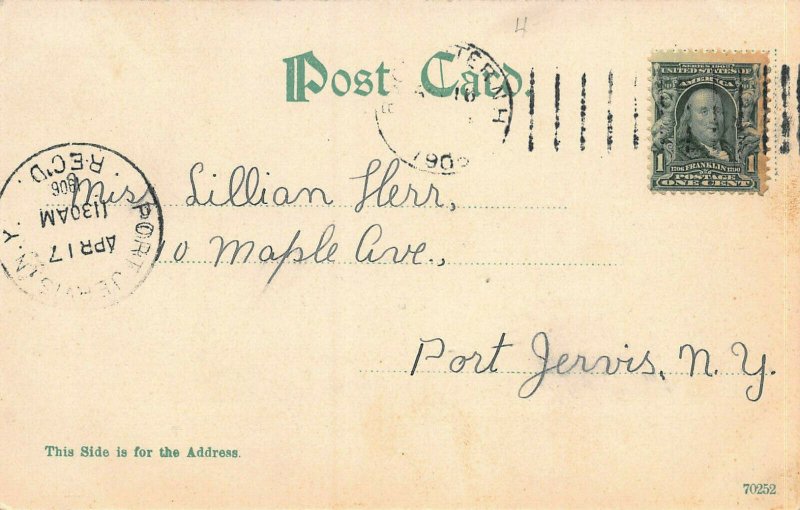 4
Post Card.
TERN H
16
1906
SERIES 1902
UNITED STATES OF
AMERICA
1 1706 FRANKLIN 1790 1
POSTAGE
ONE CENT
PORT JERVIS N.Y.
APR 17
1130 AM
1906
REC'D.
Miss Lillian Herr,
10 Maple Ave.,
Port Jervis, N.Y.
This Side is for the Address.
70252